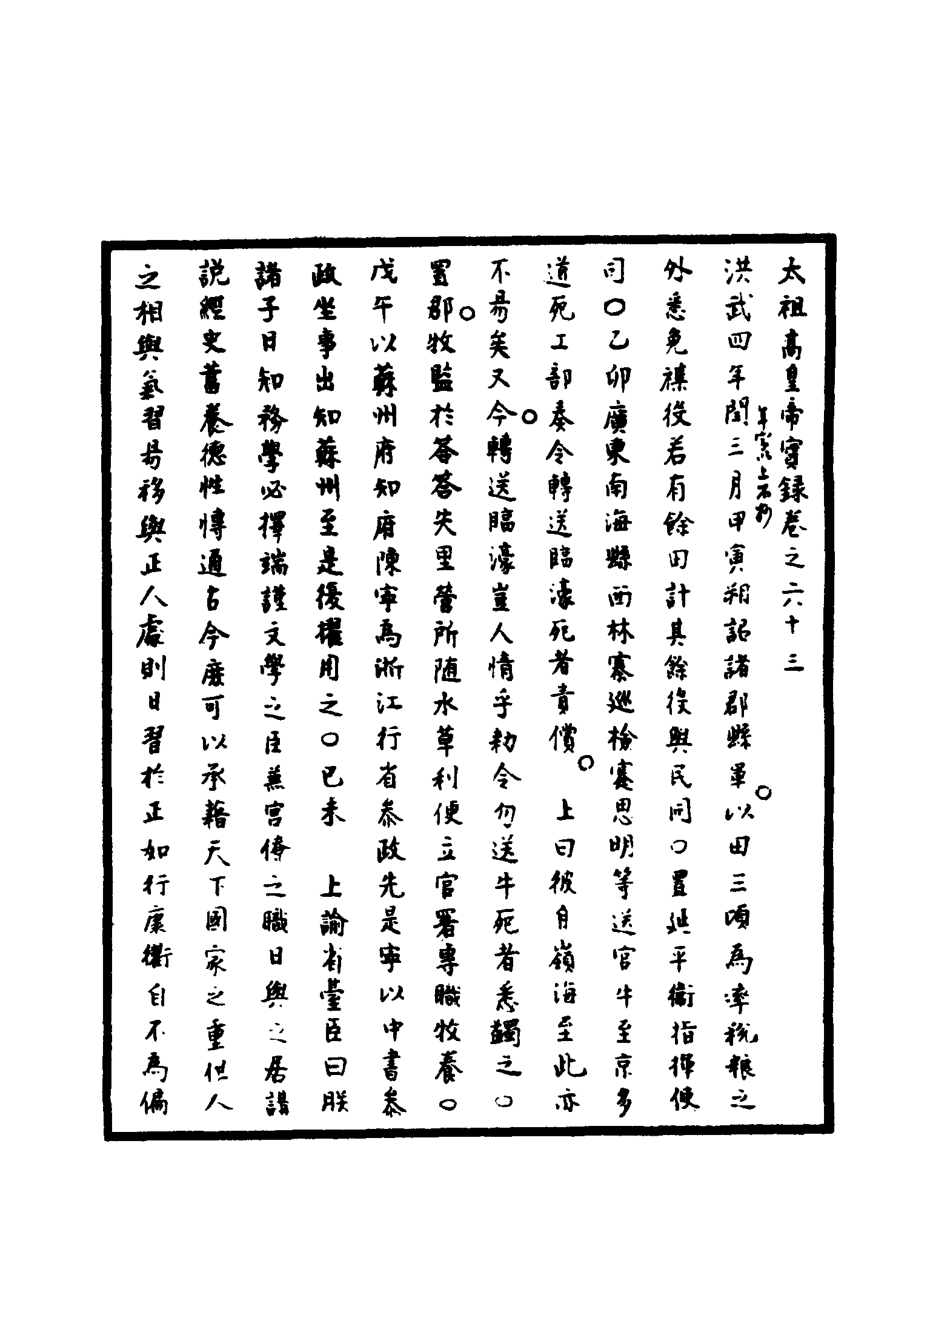 太祖高皇帝實錄卷之六十三
洪武四年閏三月甲寅朔詔諸郡縣軍以田三頃為率稅粮之
外悉免襍役若有餘田計其餘役與民同〇置延平衞指揮使
司〇乙卯廣東南海縣西林寨巡檢蹇思明等送官牛至京多
道死工部奏令轉送臨濠死者責償　上曰彼自嶺海至此亦
不易矣又今轉送臨濠豈人情乎勑令勿送牛死者悉蠲之〇
置郡牧監於荅荅失里營所随水草利便立官署專職牧養〇
戊午以蘇州府知府陳寧為浙江行省叅政先是寧以中書叅
政坐事出知蘇州至是復擢用之〇已未　上諭省臺臣曰朕
諸子日知務學必擇端謹文學之臣兼宮僚之職日與之居講
説經史蓄養德性愽通古今庶可以承藉天下國家之重但人
之相與氣習易移與正人處則日習於正如行康衢自不為偏